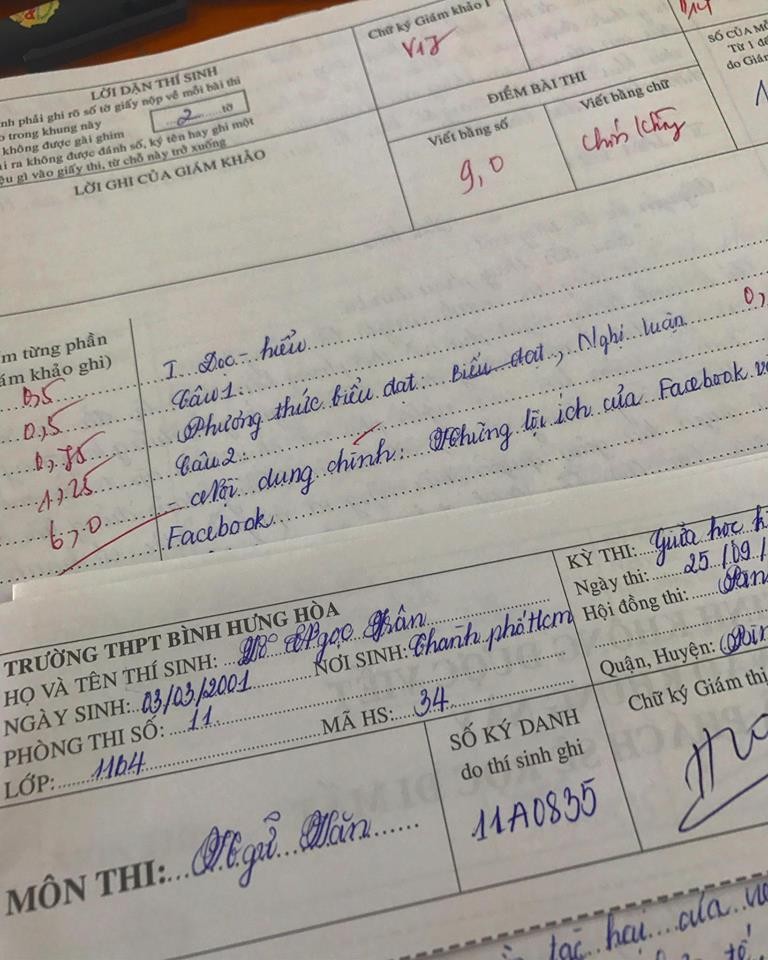 LỜI DẶN THÍ SINH
nh phải ghi rõ số tờ giấy nộp về mỗi bài thi
trong khung này
2 tờ
không được gài ghim
i ra không được đánh số, ký tên hay ghi một
ệu gì vào giấy thi, từ chỗ này trở xuống
LỜI GHI CỦA GIÁM KHẢO
Chữ ký Giám khảo 1
ĐIỂM BÀI THI
Viết bằng số
Viết bằng chữ
9,0
SỐ CỦA MÔ
Từ 1 để
do Giám
m từng phần
ám khảo ghi)
0,5
0,5
0,75
1,25
6,0
I. Đọc - hiểu
Câu 1:
Phương thức biểu đạt: Biểu đạt, Nghị luận
0,
Câu 2:
- Nội dung chính: Những lợi ích của Facebook
Facebook
TRƯỜNG THPT BÌNH HƯNG HÒA
HỌ VÀ TÊN THÍ SINH: Ngọc Trân
NGÀY SINH: 03/03/2001 NƠI SINH: Thành phố Hcm
PHÒNG THI SỐ: 11
MÃ HS: 34
LỚP: 11b4
KỲ THI: Giữa học k
Ngày thi: 25/09/
Hội đồng thi:
Quận, Huyện: Bìn
MÔN THI: Ngữ Văn
SỐ KÝ DANH
do thí sinh ghi
11A0835
Chữ ký Giám thị
tác hại của